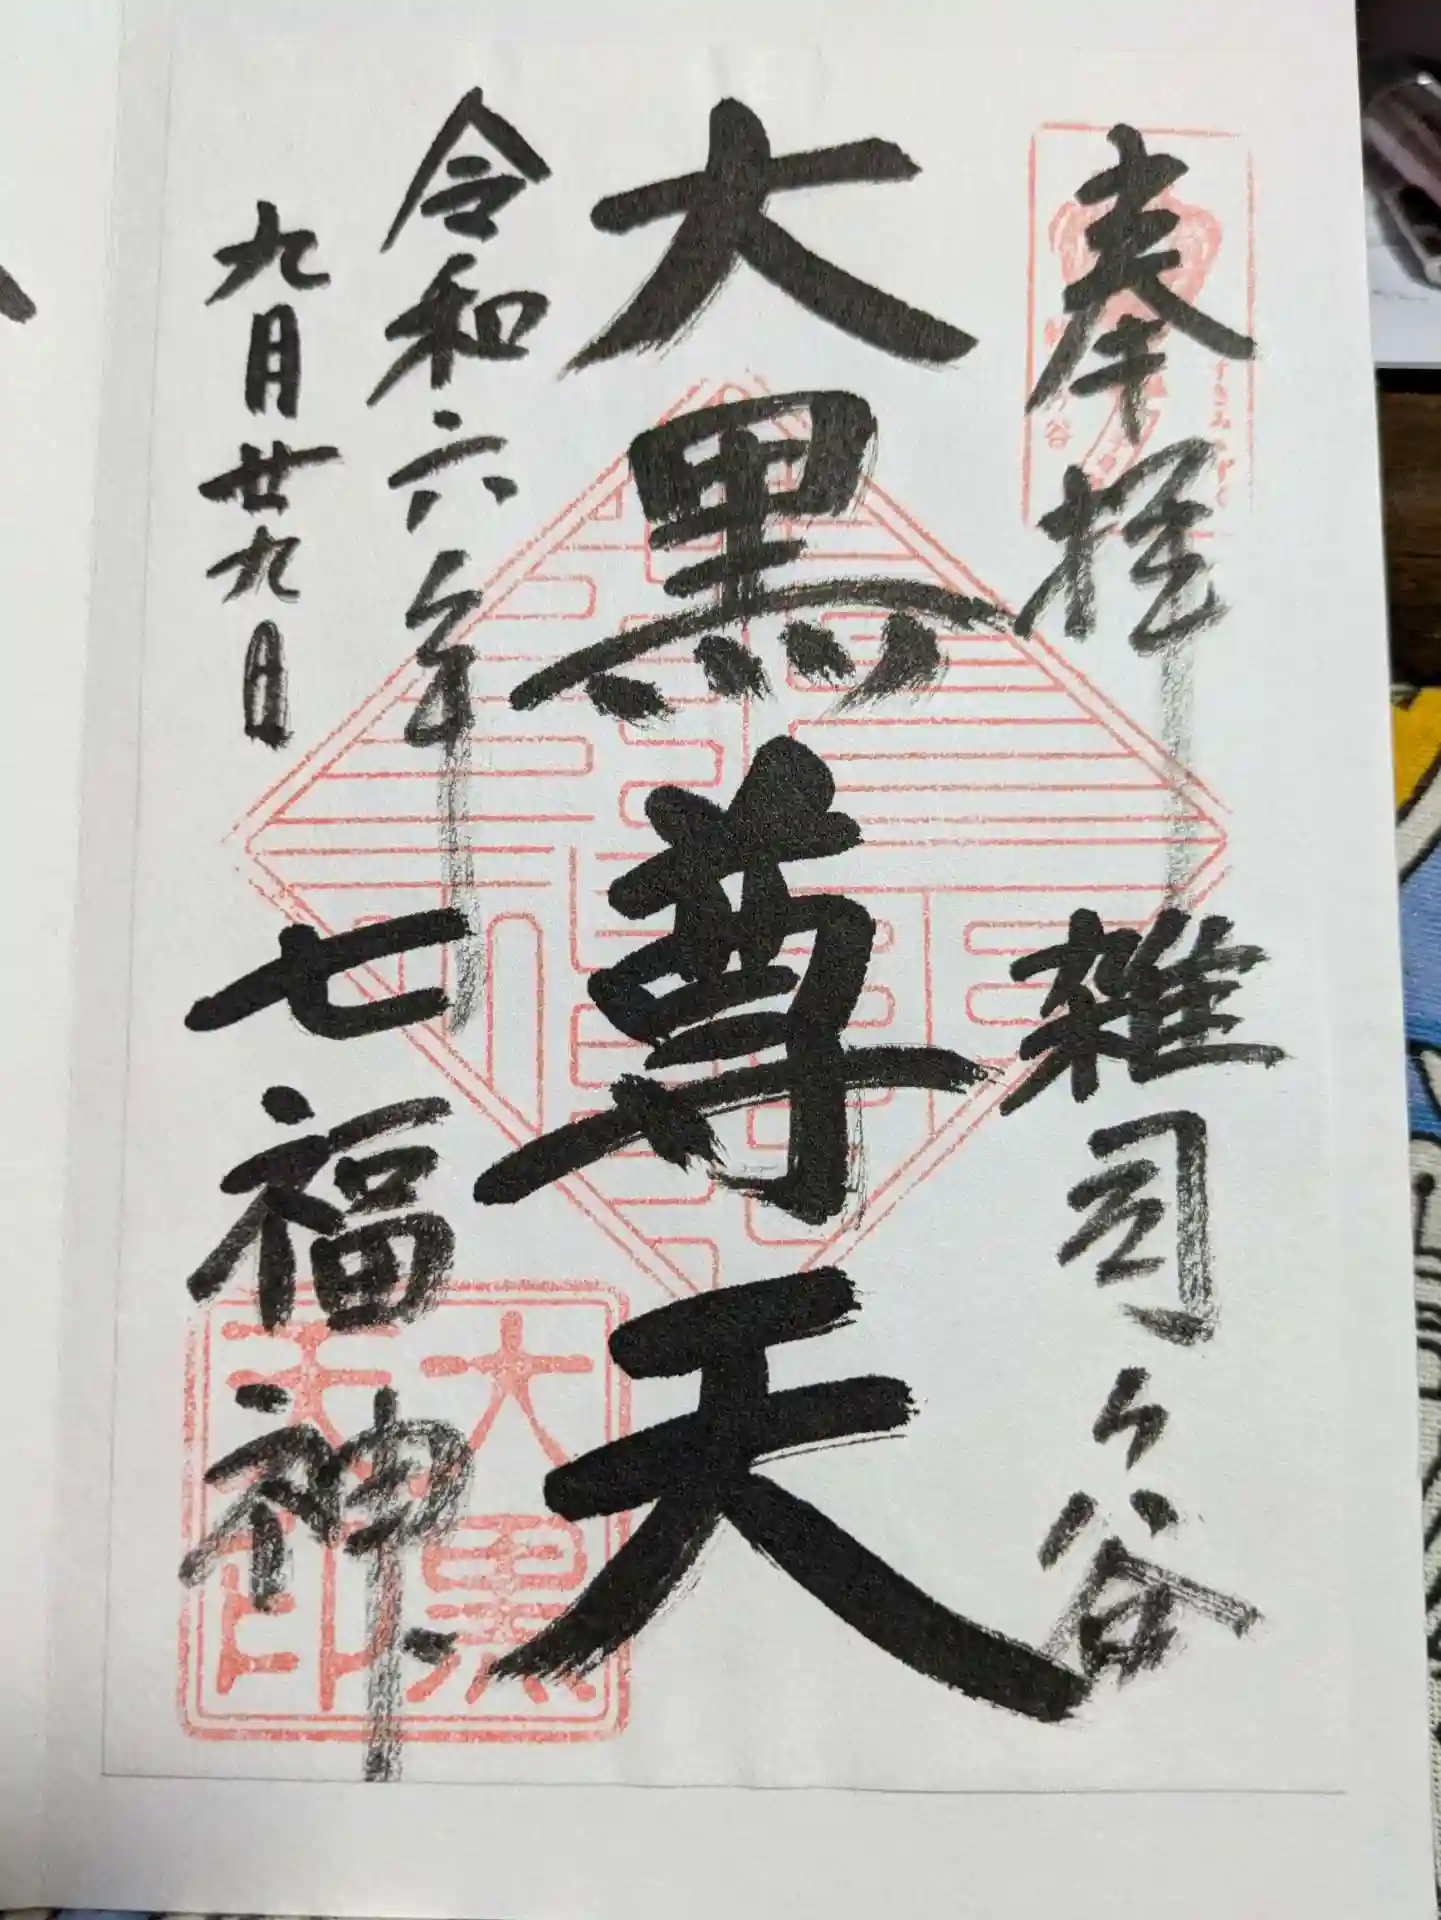 奉拝
雑司ヶ谷
大黒尊天
令和六年
九月廿九日
七福神
大黒
天印